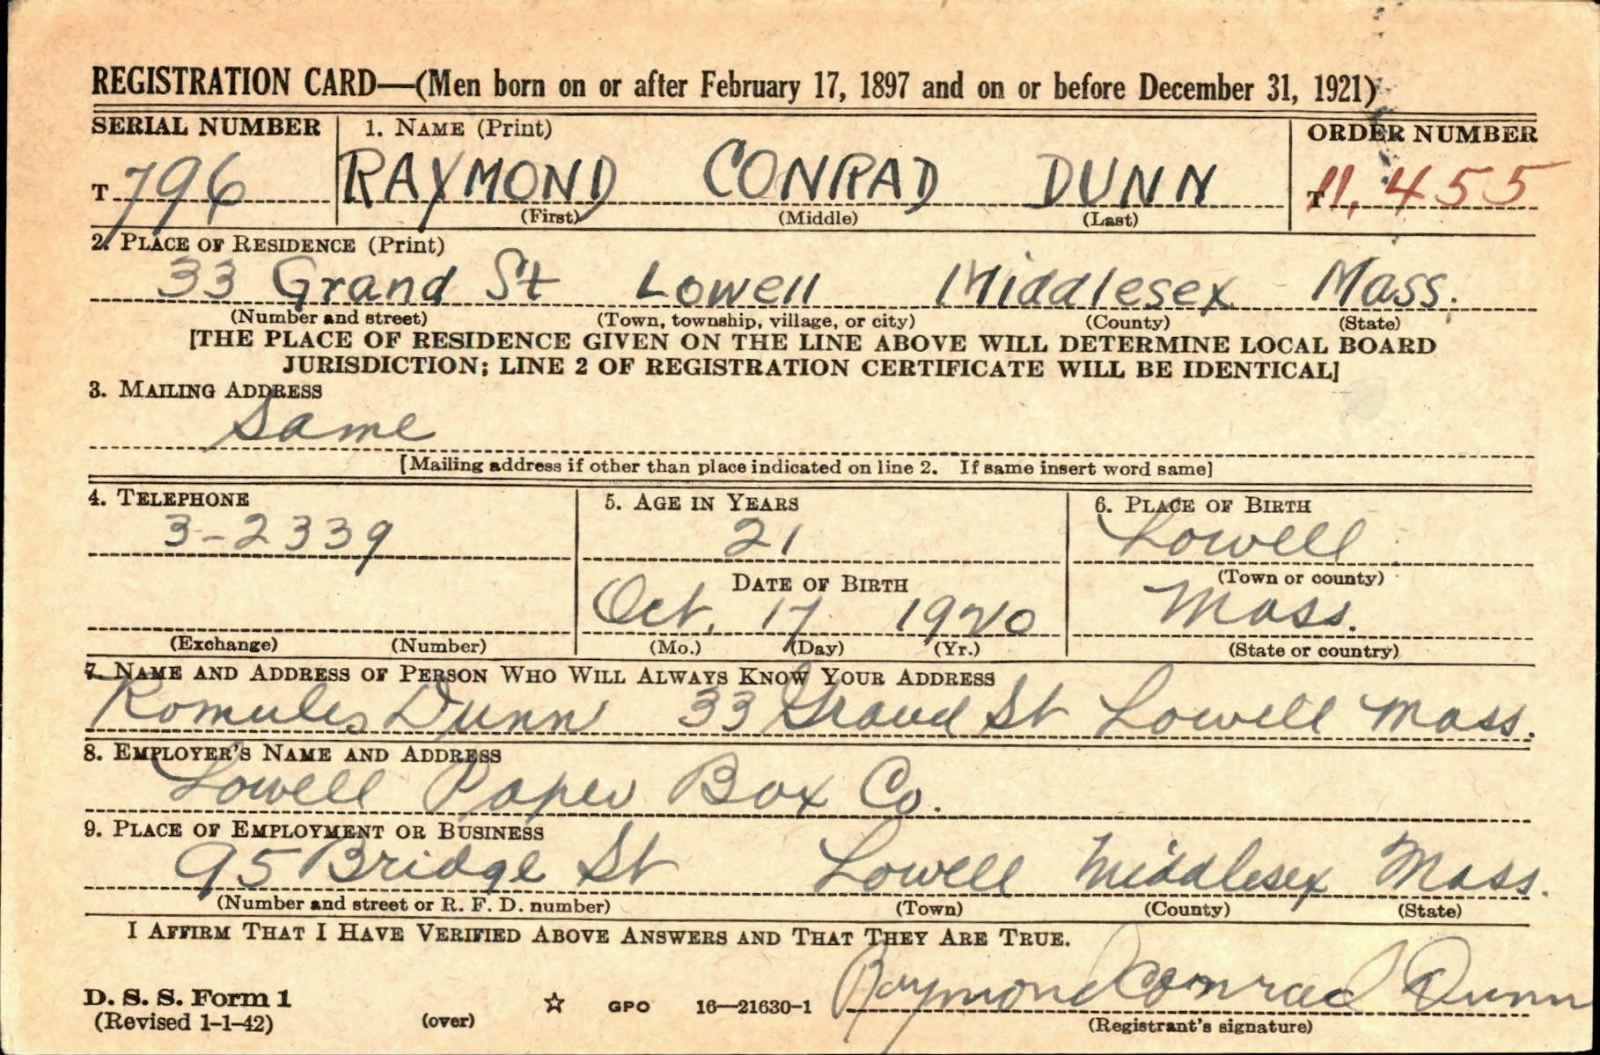 REGISTRATION CARD—(Men born on or after February 17, 1897 and on or before December 31, 1921)
SERIAL NUMBER 1. NAME (Print) ORDER NUMBER
T 796 RAYMOND CONRAD DUNN T 11,455
(First) (Middle) (Last)
2. PLACE OF RESIDENCE (Print)
33 Grand St Lowell Middlesex Mass.
(Number and street) (Town, township, village, or city) (County) (State)
[THE PLACE OF RESIDENCE GIVEN ON THE LINE ABOVE WILL DETERMINE LOCAL BOARD
JURISDICTION; LINE 2 OF REGISTRATION CERTIFICATE WILL BE IDENTICAL]
3. MAILING ADDRESS
Same
[Mailing address if other than place indicated on line 2. If same insert word same]
4. TELEPHONE 5. AGE IN YEARS 6. PLACE OF BIRTH
3-2339 21 Lowell
DATE OF BIRTH (Town or county)
Oct. 17 1920 Mass.
(Exchange) (Number) (Mo.) (Day) (Yr.) (State or country)
7. NAME AND ADDRESS OF PERSON WHO WILL ALWAYS KNOW YOUR ADDRESS
Romules Dunn 33 Grand St Lowell Mass.
8. EMPLOYER'S NAME AND ADDRESS
Lowell Paper Box Co.
9. PLACE OF EMPLOYMENT OR BUSINESS
95 Bridge St Lowell Middlesex Mass.
(Number and street or R. F. D. number) (Town) (County) (State)
I AFFIRM THAT I HAVE VERIFIED ABOVE ANSWERS AND THAT THEY ARE TRUE.
Raymond Conrad Dunn
D. S. S. Form 1
(Revised 1-1-42) (over) ☆ GPO 16—21630-1 (Registrant's signature)